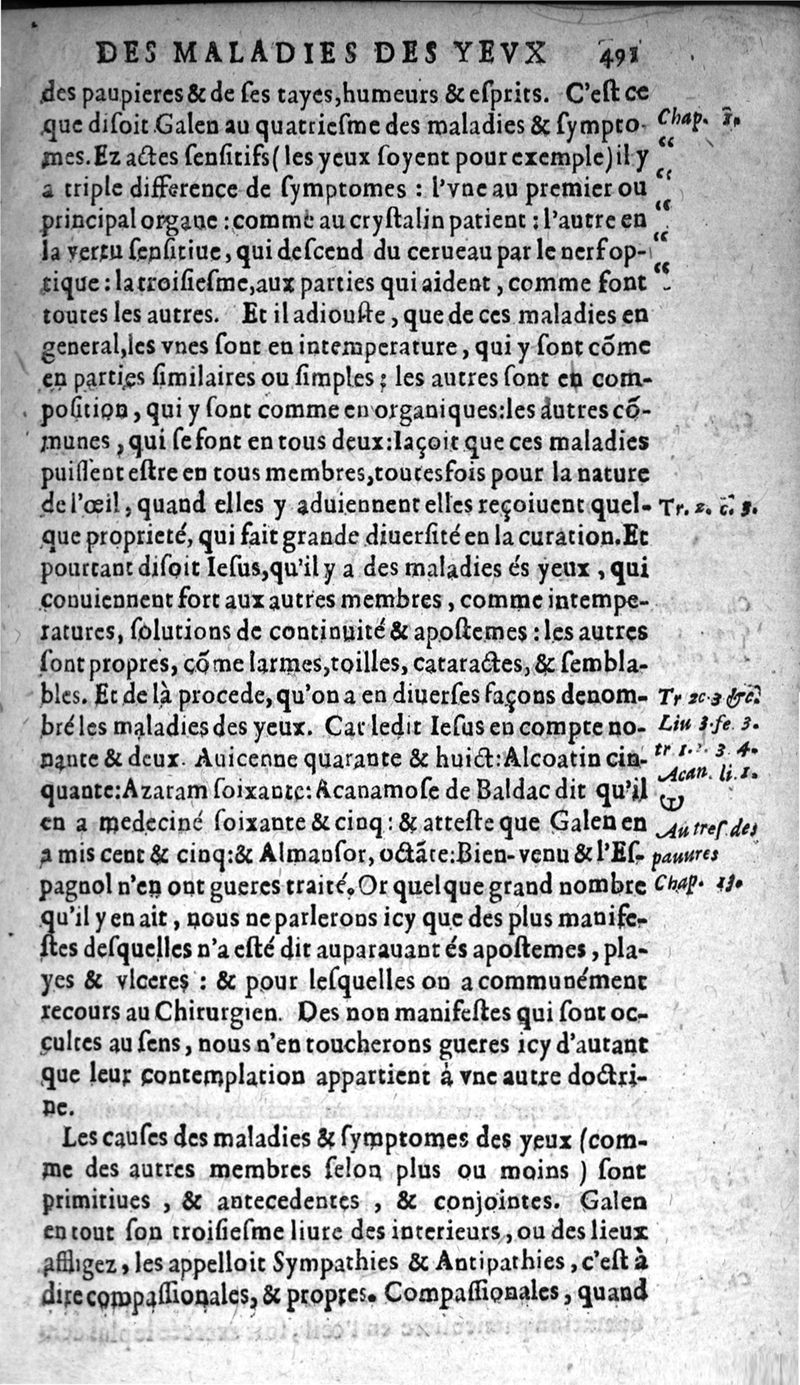 DES MALADIES DES YEVX 491
des paupieres & de ſes tayes, humeurs & eſprits. C'eſt ce
que diſoit Galen au quatrieſme des maladies & ſympto- Chap. 1.
mes. Ez actes ſenſitifs (les yeux ſoyent pour exemple) il y “
a triple difference de ſymptomes : l'vne au premier ou “
principal organe : comme au cryſtalin patient : l'autre en “
la vertu ſenſitiue, qui deſcend du cerueau par le nerf op- “
tique : la troiſieſme, aux parties qui aident, comme ſont “
toutes les autres. Et il adiouſte, que de ces maladies en
general, les vnes ſont en intemperature, qui y ſont cõme
en parties ſimilaires ou ſimples ; les autres ſont en com-
poſition, qui y ſont comme en organiques : les autres cõ-
munes, qui ſe font en tous deux : Iaçoit que ces maladies
puiſſent eſtre en tous membres, toutesfois pour la nature
de l'œil, quand elles y aduiennent elles reçoiuent quel- Tr. 2. c. 3.
que proprieté, qui fait grande diuerſité en la curation. Et
pourtant diſoit Ieſus, qu'il y a des maladies és yeux, qui
conuiennent fort aux autres membres, comme intempe-
ratures, ſolutions de continuité & apoſtemes : les autres
ſont propres, cõme larmes, toilles, cataractes, & ſembla-
bles. Et de là procede, qu'on a en diuerſes façons denom- Tr 2c. 3 &c.
bré les maladies des yeux. Car ledit Ieſus en compte no- Liu 3. fe 3.
nante & deux. Auicenne quarante & huict : Alcoatin cin- tr 1. 2. 3 4.
quante : Azaram ſoixante : Acanamoſe de Baldac dit qu'il Acan. li. 1.
en a mediciné ſoixante & cinq : & atteſte que Galen en Autreſ des
a mis cent & cinq : & Almanſor, octãte : Bien-venu & l'Eſ- pauures
pagnol n'en ont gueres traité. Or quelque grand nombre Chap. 13.
qu'il y en ait, nous ne parlerons icy que des plus manife-
ſtes deſquelles n'a eſté dit auparauant és apoſtemes, pla-
yes & vlceres : & pour leſquelles on a communément
recours au Chirurgien. Des non manifeſtes qui ſont oc-
cultes au ſens, nous n'en toucherons gueres icy d'autant
que leur contemplation appartient à vne autre doctri-
ne.
Les cauſes des maladies & ſymptomes des yeux (com-
me des autres membres ſelon plus ou moins) ſont
primitiues, & antecedentes, & conjointes. Galen
en tout ſon troiſieſme liure des interieurs, ou des lieux
affligez, les appelloit Sympathies & Antipathies, c'eſt à
dire compaſſionales, & propres. Compaſſionales, quand